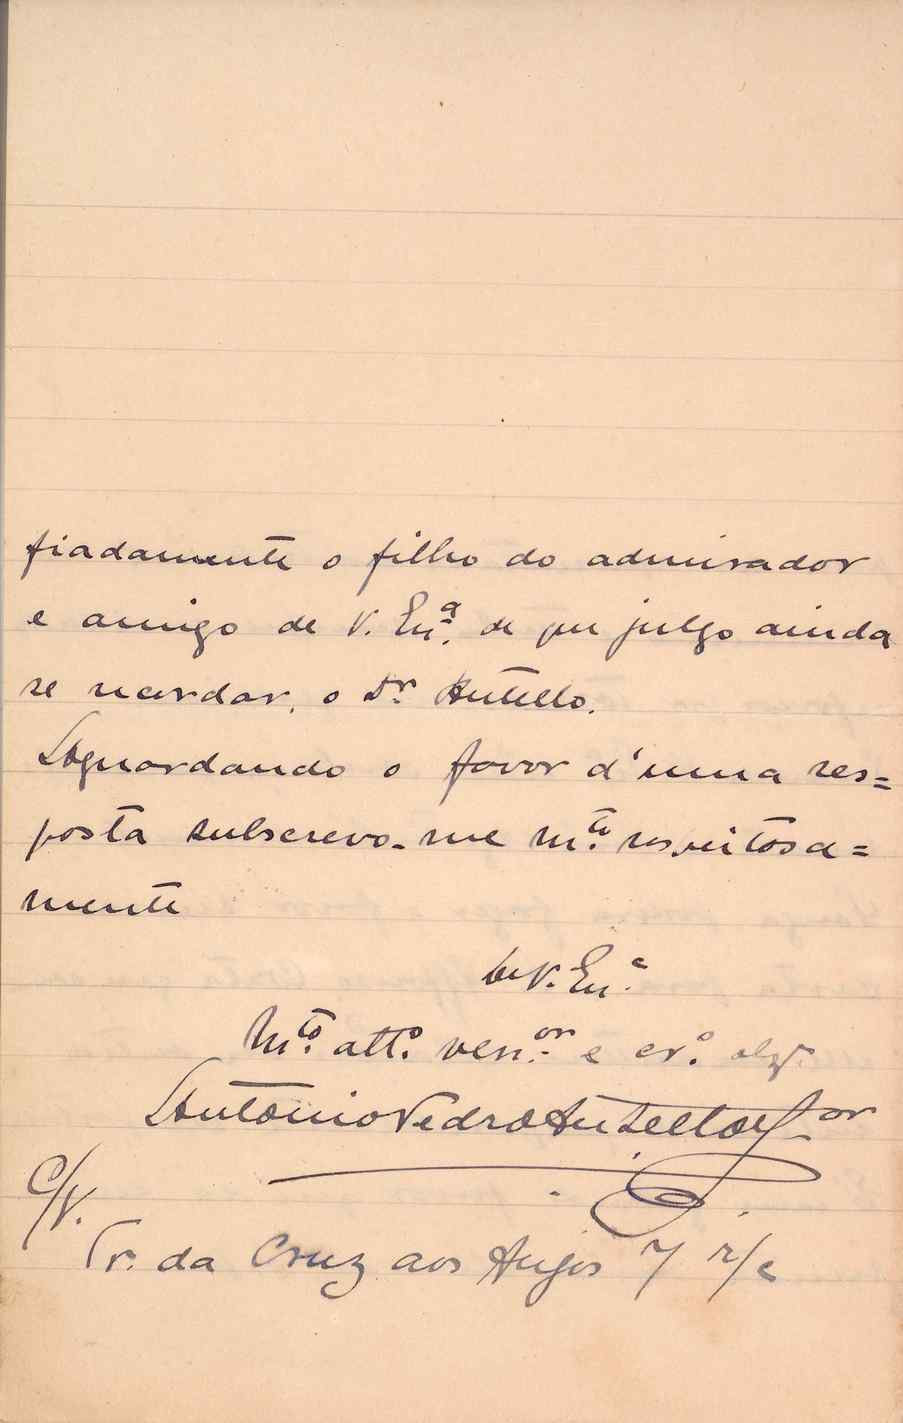 fiadamente o filho do admirador
e amigo de V. Exª. de que julgo ainda
se recordar, o Dr. Antello.
Aguardando o favor d'uma res=
posta subscrevo-me m.to respeitosa=
mente
De V. Ex.ª
M.to att.o ven.or e cr.o obg.o
Antonio Pedro Antello Jor
C/V.
Tr. da Cruz aos Anjos 7 r/c